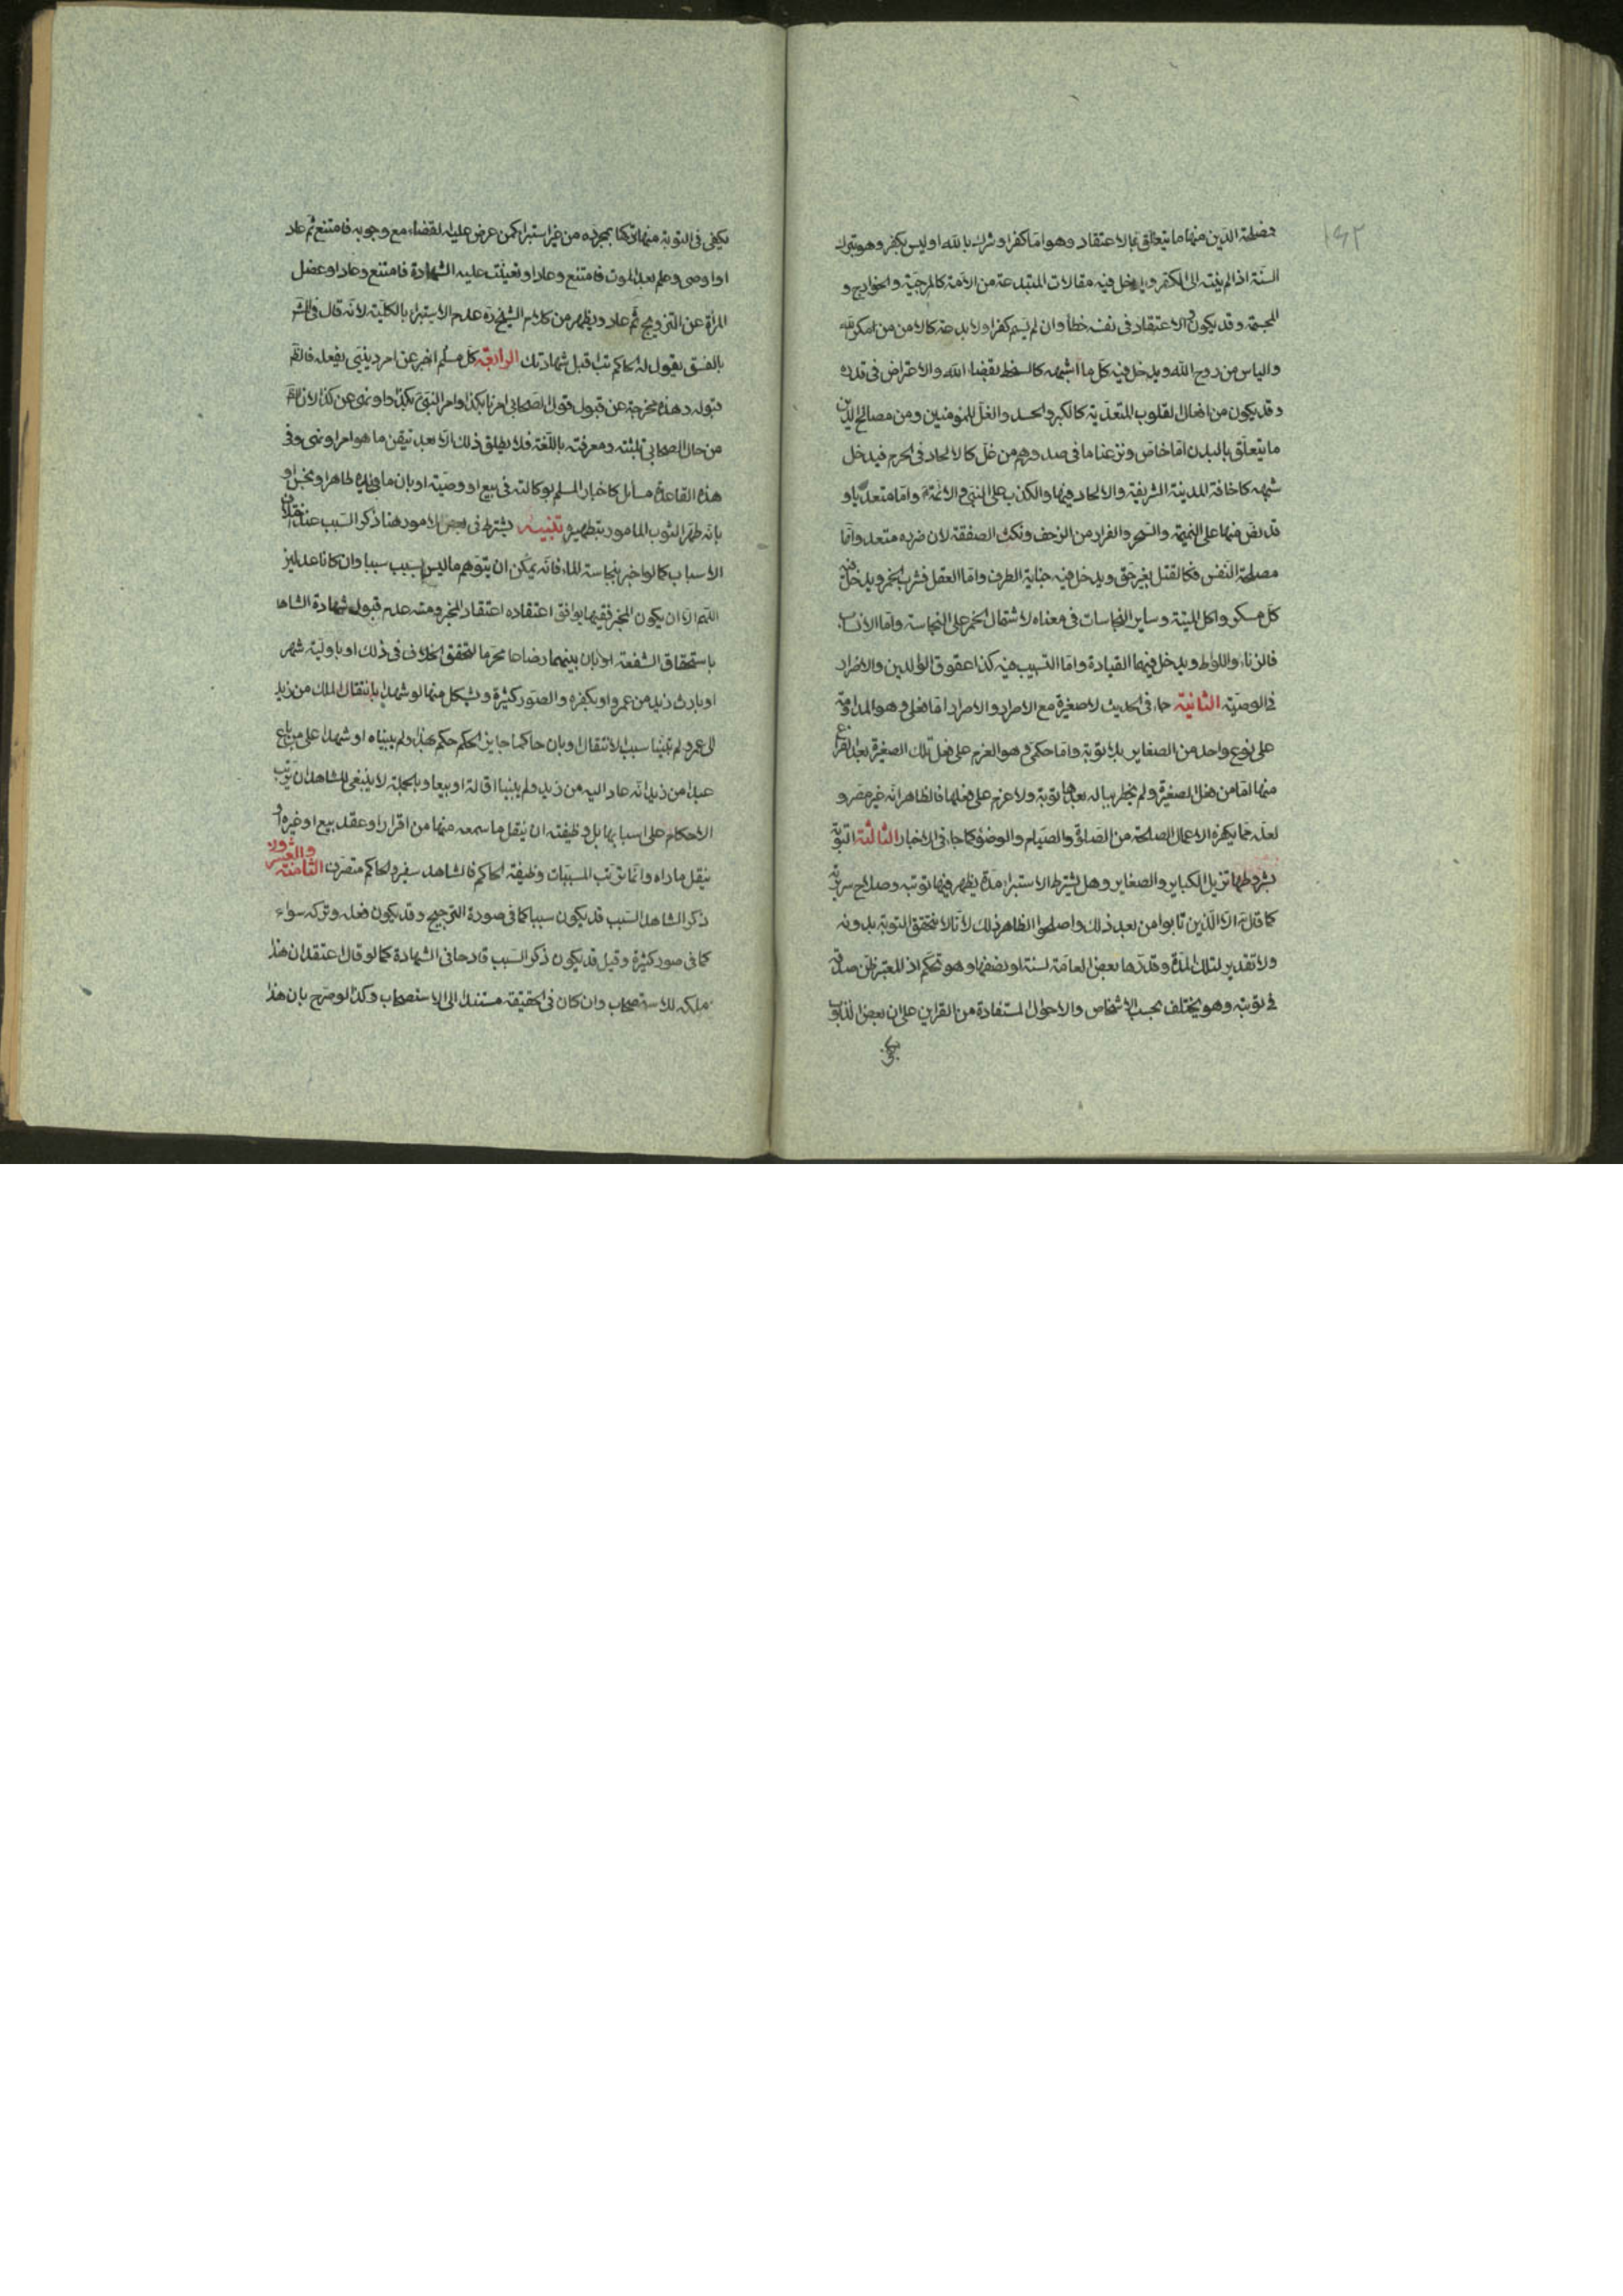 ١٤٢
مصلحة الدين منها ما يتعلق بالاعتقاد وهو اما كفر او شرك بالله او ليس بكفر وهو ترك
السنة اذا لم ينته الى الكفر ويدخل فيه مقالات المبتدعة من الامة كالمرجئة والخوارج و
المجسمة وقد يكون الاعتقاد في نفسه خطأ وان لم يسم كفرا ولا بدعة كالامن من مكر الله
والياس من روح الله ويدخل فيه كل ما اشبهه كالسخط بقضاء الله والاعتراض في قدره
وقد يكون من افعال القلوب المتعدية كالكبر والحسد والغل للمومنين ومن مصالح الدين
ما يتعلق بالبدن اما خاص ونزعنا ما في صدورهم من غل كالالحاد في الحرم فيدخل
شبهه كاخافة المدينة الشريفة والالحاد فيها والكذب على النبي والائمة واما متعديا و
قد نص منها على النميمة والسحر والفرار من الزحف ونكث الصفقة لان ضرره متعد واما
مصلحة النفس فكالقتل بغير حق ويدخل فيه جناية الطرف واما العقل فشرب الخمر ويدخل فيه
كل مسكر واكل الميتة وساير النجاسات في معناه لاشتمال الخمر على النجاسة واما الانساب
فالزناء واللواط ويدخل فيهما القيادة واما النسب فيه كذا عقوق الوالدين والاضرار
في الوصية الثانية جاء في الحديث لا صغيرة مع الاصرار والاصرار اما فعلي وهو المداومة
على نوع واحد من الصغاير بلا توبة واما حكمي وهو العزم على فعل تلك الصغيرة بعد الفراغ
منها اما من فعل الصغيرة ولم يخطر بباله بعدها توبة ولا عزم على فعلها فالظاهر انه غير مصر و
لعله مما يكفره الاعمال الصالحة من الصلوة والصيام والوضوء كما جاء في الاخبار الثالثة التوبة
بشروطها تزيل الكباير والصغاير وهل يشترط الاستبراء مدة يظهر فيها توبته وصلاح سريرته
كما قال الا الذين تابوا من بعد ذلك واصلحوا الظاهر ذلك لانا لا نتحقق التوبة بدونه
ولا تقدير لتلك المدة وقدرها بعض العامة لسنة او نصفها وهو تحكم اذ المعتبر ظن صدقه
في توبته وهو يختلف بحسب الاشخاص والاحوال المستفادة من القراين على ان بعض الذنوب
يكفي في التوبة منها تركها بمجرده من غير استبراء كمن عرض عليه القضاء مع وجوبه فامتنع ثم عاد
او اوصى وعلم بعد الموت فامتنع وعاد او تعينت عليه الشهادة فامتنع وعاد او عضل
المراة عن التزويج ثم عاد ويظهر من كلام الشيخ ره عدم الاستبراء بالكلية لانه قال في المشهور
بالفسق يقول له الحاكم تب اقبل شهادتك الرابعة كل مسلم اخبر عن امر ديني يفعله فالظاهر
قبوله وهذه مخرجة عن قبول قول الصحابي امرنا بكذا وامر النبي بكذا او نهى عن كذا لان الظاهر
من حال الصحابي تثبته ومعرفته باللغة فلا يطلق ذلك الا بعد تيقن ما هو امر او نهي وفي
هذه القاعدة مسايل كاخبار المسلم بوكالته في بيع او وصيته او بان ما في يده طاهر او نجس او
بانه طهر الثوب المامور بتطهيره تنبيه يشترط في بعض الامور هنا ذكر السبب عند اختلاف
الاسباب كما لو اخبر بنجاسة الماء فانه يمكن ان يتوهم ما ليس بسبب سببا وان كانا عدلين
اللهم الا ان يكون المخبر فقيها يوافق اعتقاده اعتقاد المخبر ومنه عدم قبول شهادة الشاهد
باستحقاق الشفعة او بان بينهما رضاعا محرما لتحقق الخلاف في ذلك او باولية شهر
او بارث زيد من عمرو او بكفره والصور كثيرة ويشكل منها لو شهدا بانتقال الملك من زيد
الى عمرو ولم يبينا سبب الانتقال او بان حاكما جايز الحكم حكم بهذا ولم يبيناه او شهدا على من باع
عبدا من زيد انه عاد اليه من زيد ولم يبينا اقالة او بيعا وبالجملة لا ينبغي للشاهد ان يرتب
الاحكام على اسبابها بل وظيفته ان ينقل ما سمعه منها من اقرار او عقد بيع او غيره او
ينقل ما راه وانما ترتب المسببات وظيفة الحاكم فالشاهد سفير والحاكم متصرف الثامنة والعشرون
ذكر الشاهد السبب قد يكون سببا كما في صورة الترجيح وقد يكون فعله وتركه سواء
كما في صور كثيرة وقيل قد يكون ذكر السبب قادحا في الشهادة كما لو قال اعتقد ان هذا
ملكه للاستصحاب وان كان في الحقيقة مستندا الى الاستصحاب وكذا لو صرح بان هذا